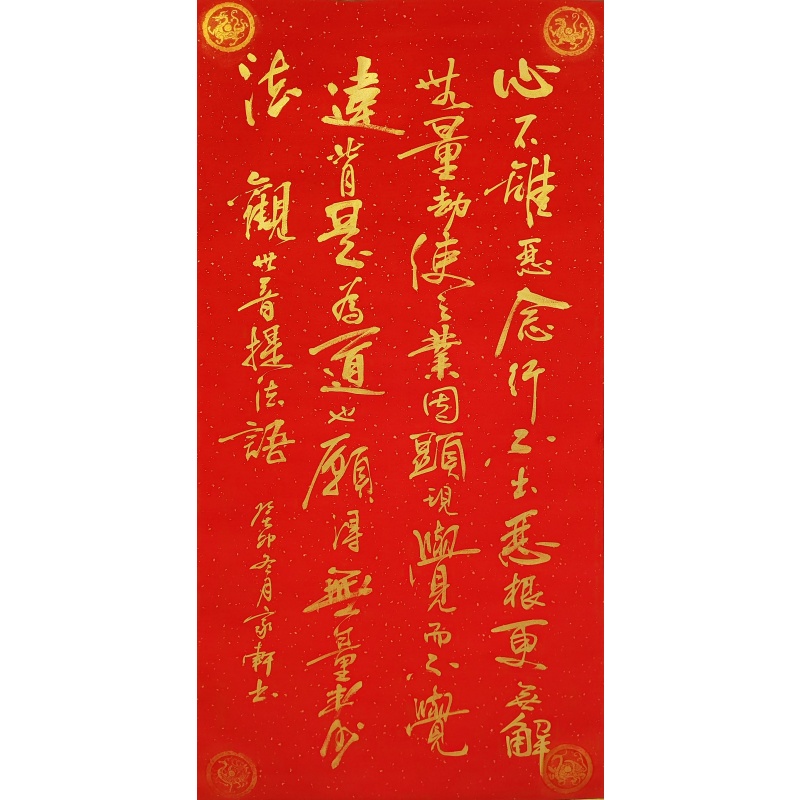 心不離惡念行不出惡根更無解
無量劫使之業因顯現覺而不覺
違背是為道也願得無量書金
法 觀世音提法語
癸卯冬月家軒書